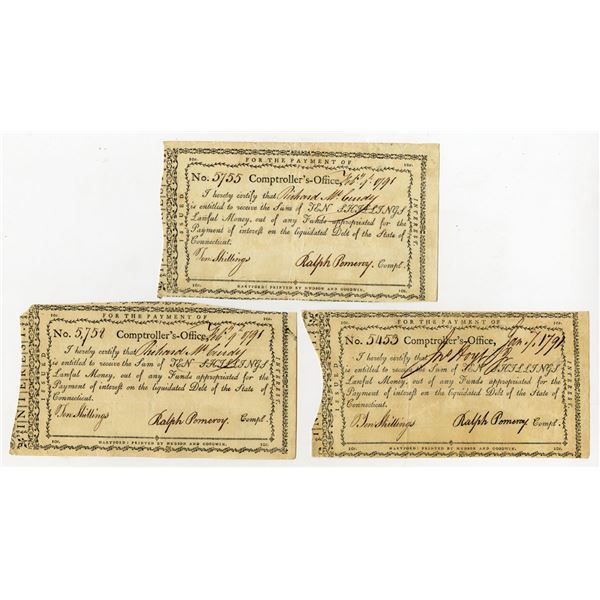 10s. FOR THE PAYMENT OF 10s.
ISSUED
INTEREST.
No. 5755 Comptroller's-Office, Feb. 9 1791
I hereby certify that Richard McCurdy
is entitled to receive the Sum of TEN SHILLINGS
Lawful Money, out of any Funds appropriated for the
Payment of interest on the liquidated Debt of the State of
Connecticut.
Ten Shillings Ralph Pomeroy. Compt.
10s. HARTFORD: PRINTED BY HUDSON AND GOODWIN. 10s.
FOR THE PAYMENT OF
INTEREST
ISSUED
No. 5,754 Comptroller's-Office, Feb. 9 1791
I hereby certify that Richard McCurdy
is entitled to receive the Sum of TEN SHILLINGS
Lawful Money, out of any Funds appropriated for the
Payment of interest on the liquidated Debt of the State of
Connecticut.
Ten Shillings Ralph Pomeroy. Compt.
10s. HARTFORD: PRINTED BY HUDSON AND GOODWIN. 10s.
10s. FOR THE PAYMENT OF 10s.
ISSUED
INTEREST.
No. 5453 Comptroller's-Office, Jan. 1791
I hereby certify that Hoyt
is entitled to receive the Sum of TEN SHILLINGS
Lawful Money, out of any Funds appropriated for the
Payment of interest on the liquidated Debt of the State of
Connecticut.
Ten Shillings Ralph Pomeroy. Compt.
10s. HARTFORD: PRINTED BY HUDSON AND GOODWIN. 10s.